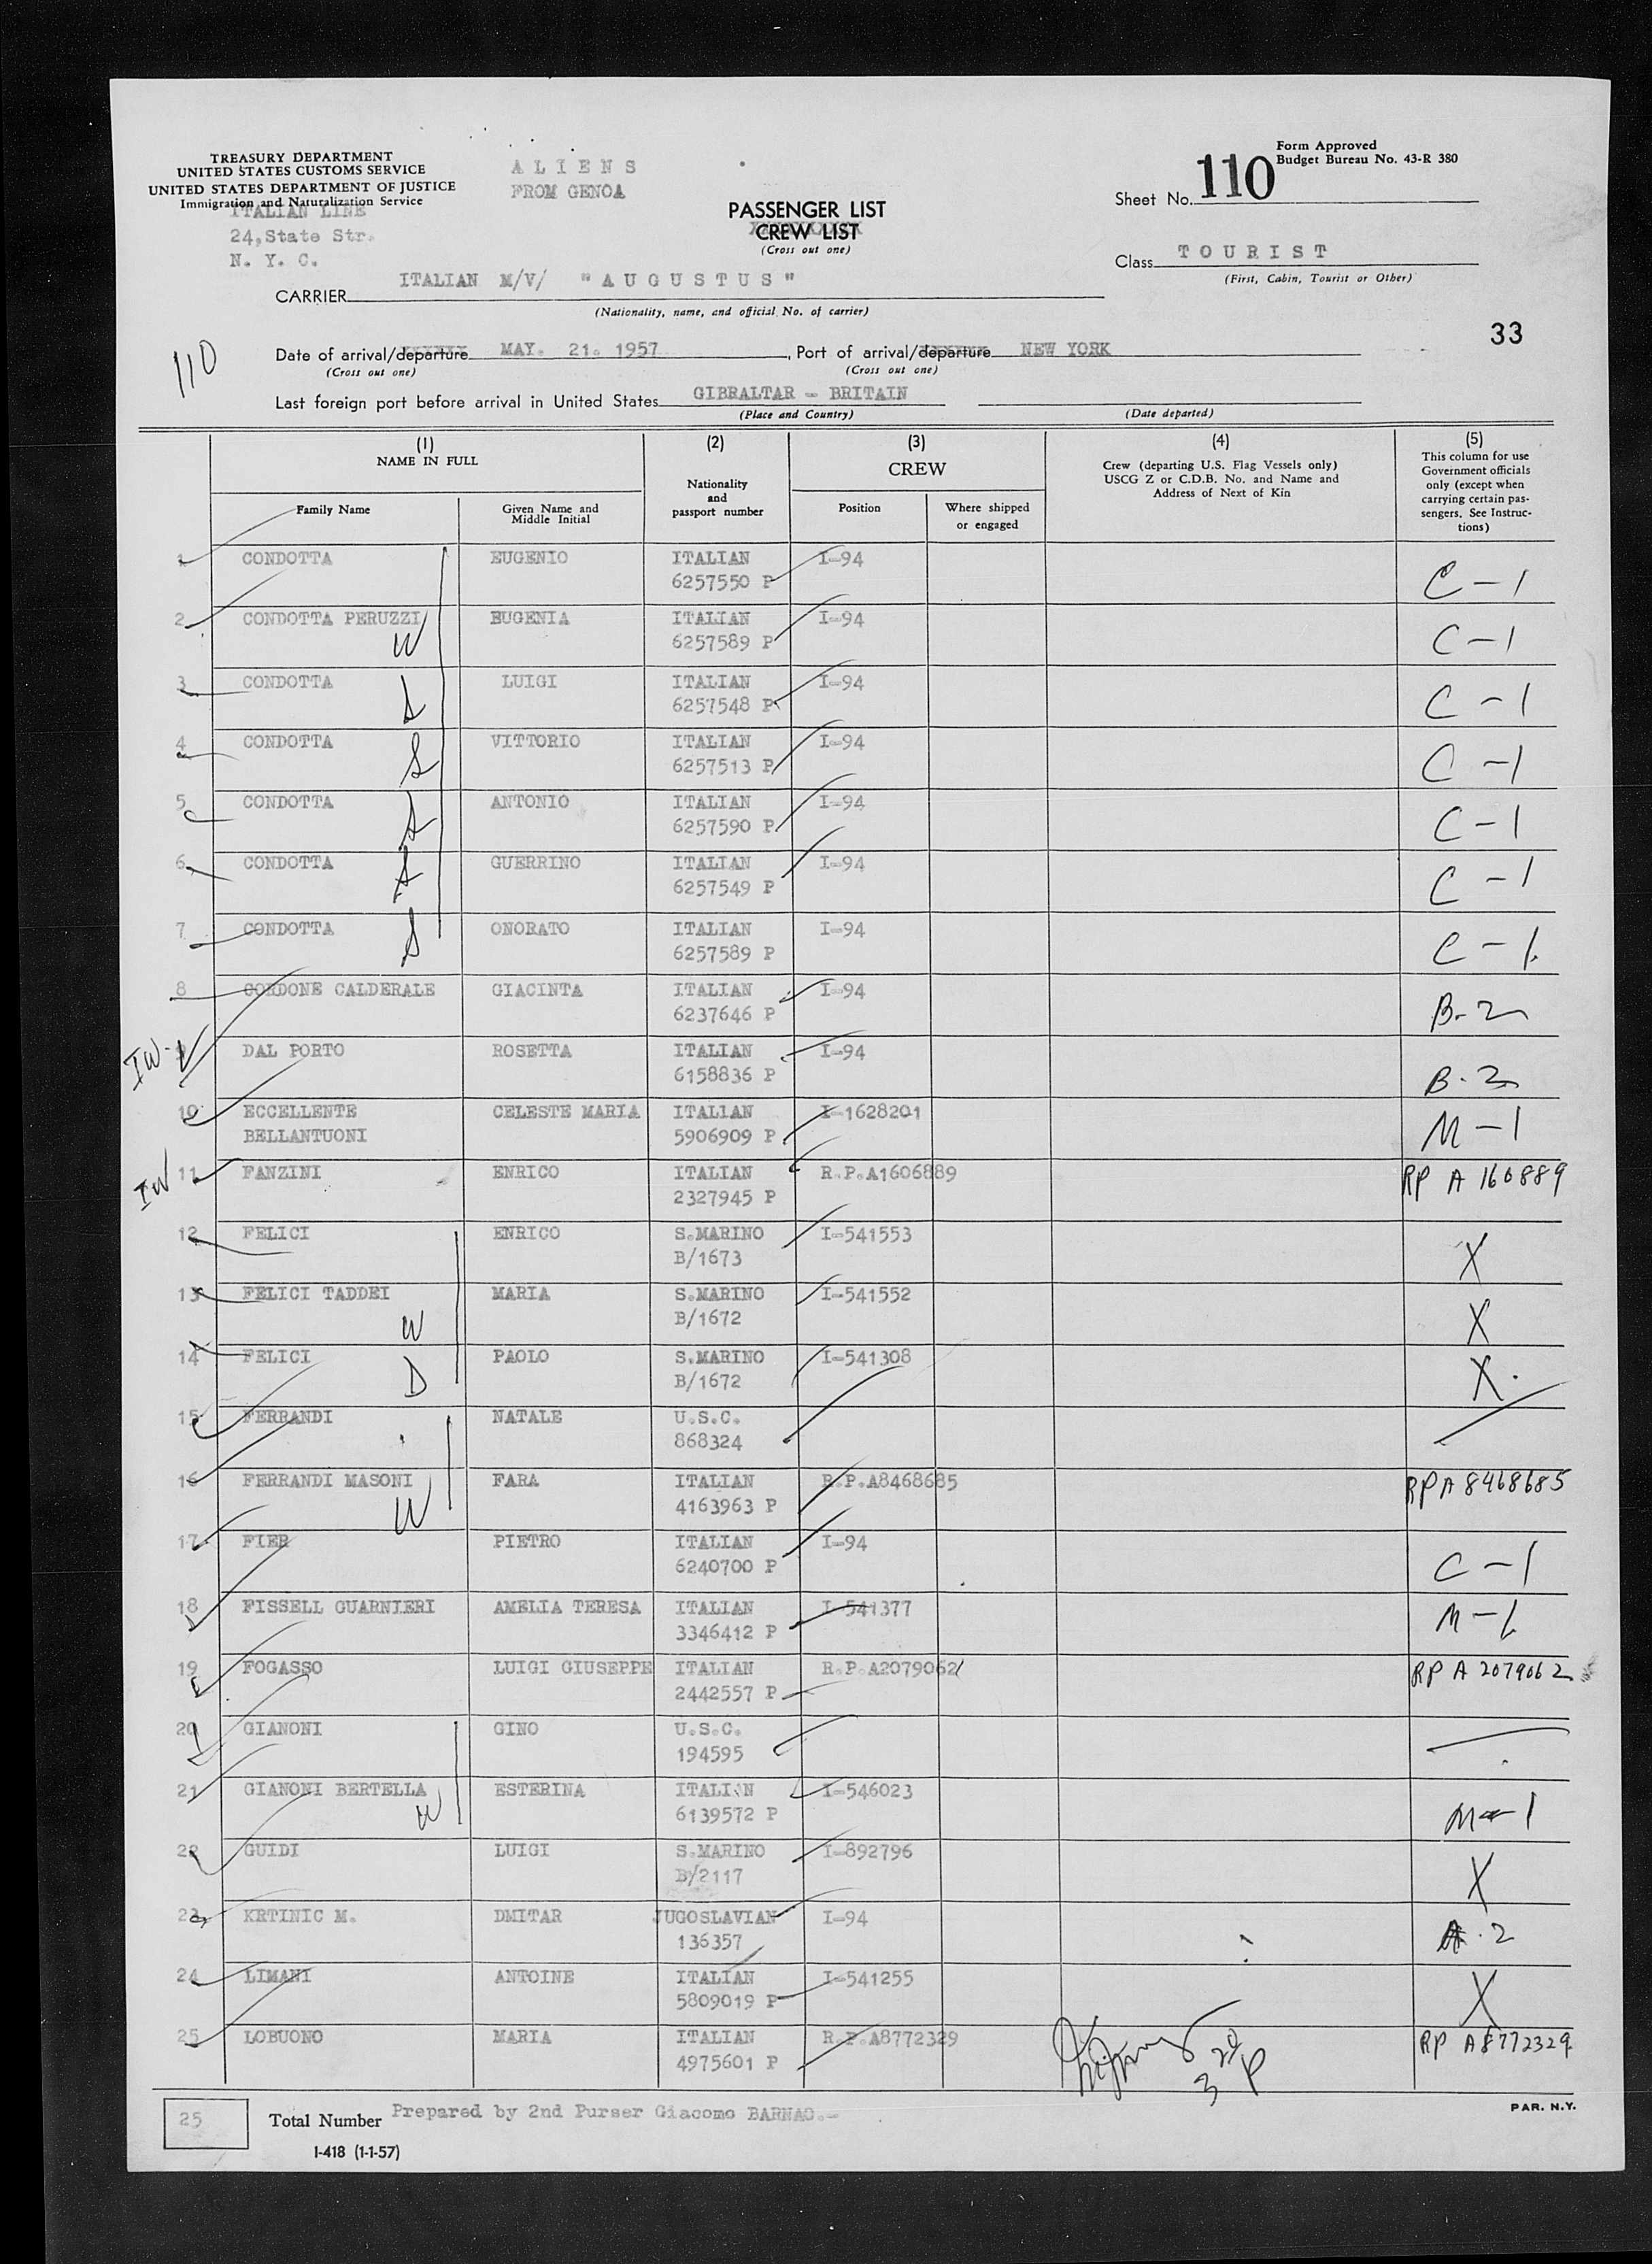 TREASURY DEPARTMENT
UNITED STATES CUSTOMS SERVICE
UNITED STATES DEPARTMENT OF JUSTICE
Immigration and Naturalization Service
ITALIAN LINE
24,State Str.
N. Y. C.
A L I E N S
FROM GENOA
PASSENGER LIST
CREW LIST
(Cross out one)
Form Approved
Budget Bureau No. 43-R 380
Sheet No. 110
Class T O U R I S T
(First, Cabin, Tourist or Other)
CARRIER ITALIAN M/V/ "A U G U S T U S"
(Nationality, name, and official No. of carrier)
33
110
Date of arrival/departure MAY. 21. 1957, Port of arrival/departure NEW YORK
(Cross out one) (Cross out one)
Last foreign port before arrival in United States GIBRALTAR - BRITAIN
(Place and Country) (Date departed)
(1) NAME IN FULL
Family Name
Given Name and Middle Initial
(2)
Nationality and passport number
(3)
CREW
Position
Where shipped or engaged
(4)
Crew (departing U.S. Flag Vessels only)
USCG Z or C.D.B. No. and Name and
Address of Next of Kin
(5)
This column for use
Government officials
only (except when
carrying certain pas-
sengers. See Instruc-
tions)
1 CONDOTTA EUGENIO ITALIAN I-94
6257550 P C-1
2 CONDOTTA PERUZZI EUGENIA ITALIAN I-94
W 6257589 P C-1
3 CONDOTTA LUIGI ITALIAN I-94
S 6257548 P C-1
4 CONDOTTA VITTORIO ITALIAN I-94
S 6257513 P C-1
5 CONDOTTA ANTONIO ITALIAN I-94
S 6257590 P C-1
6 CONDOTTA GUERRINO ITALIAN I-94
S 6257549 P C-1
7 CONDOTTA ONORATO ITALIAN I-94
S 6257589 P C-1
8 CORDONE CALDERALE GIACINTA ITALIAN I-94
6237646 P B-2
IW 9 DAL PORTO ROSETTA ITALIAN I-94
6158836 P B-2
10 ECCELLENTE CELESTE MARIA ITALIAN I-1628201
BELLANTUONI 5906909 P M-1
IW 11 FANZINI ENRICO ITALIAN R.P.A1606889 RP A 160889
2327945 P
12 FELICI ENRICO S.MARINO I-541553
B/1673 X
13 FELICI TADDEI MARIA S.MARINO I-541552
W B/1672 X
14 FELICI PAOLO S.MARINO I-541308
D B/1672 X
15 FERRANDI NATALE U.S.C.
868324
16 FERRANDI MASONI FARA ITALIAN R.P.A8468685 RP A 8468685
W 4163963 P
17 FIER PIETRO ITALIAN I-94
6240700 P C-1
18 FISSELL GUARNIERI AMELIA TERESA ITALIAN I-541377
3346412 P M-1
19 FOGASSO LUIGI GIUSEPPE ITALIAN R.P.A2079062 RP A 2079062
2442557 P
20 GIANONI GINO U.S.C.
194595
21 GIANONI BERTELLA ESTERINA ITALIAN I-546023
W 6139572 P M-1
22 GUIDI LUIGI S.MARINO I-892796
B/2117 X
23 KRTINIC M. DMITAR JUGOSLAVIAN I-94
136357 A-2
24 LIMANI ANTOINE ITALIAN I-541255
5809019 P X
25 LOBUONO MARIA ITALIAN R.P.A8772329 RP A8772329
4975601 P
25 Total Number Prepared by 2nd Purser Giacomo BARNAO.-
PAR. N.Y.
I-418 (1-1-57)